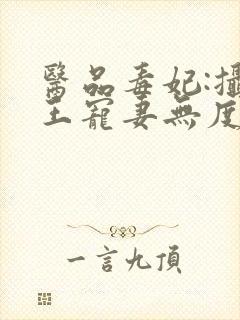 醫品毒妃:攝
王寵妻無度
一言九頂